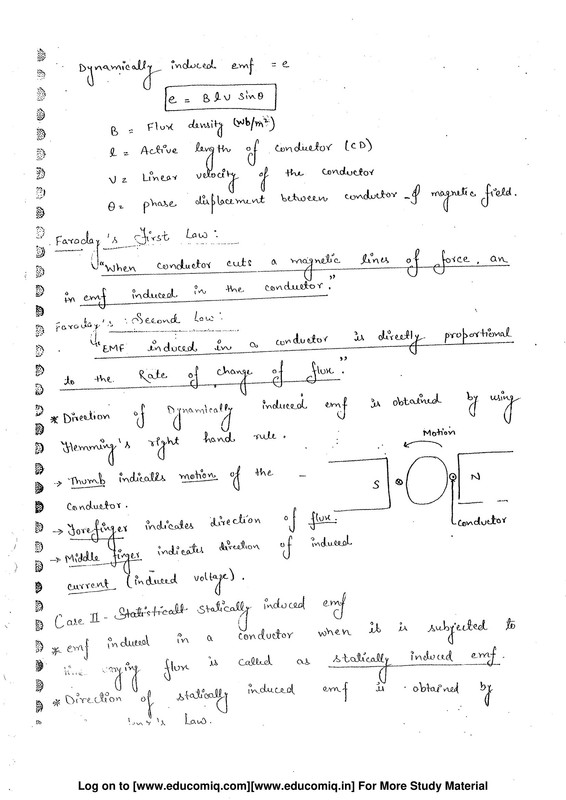 Dynamically induced emf = e
e = B l v sinθ
B = Flux density (wb/m²)
l = Active length of conductor (CD)
V = Linear velocity of the conductor
θ = phase displacement between conductor & magnetic field.
Faraday's First Law:
"When conductor cuts a magnetic lines of force, an
in emf induced in the conductor."
Faraday's Second Law:
"EMF induced in a conductor is directly proportional
to the Rate of change of flux."
* Direction of Dynamically induced emf is obtained by using
Flemming's right hand rule.
Motion
→ Thumb indicates motion of the
S
N
conductor.
conductor
→ Forefinger indicates direction of flux.
→ Middle finger indicates direction of induced
current (induced voltage).
Case II - Statically induced emf
* emf induced in a conductor when it is subjected to
time varying flux is called as statically induced emf.
* Direction of statically induced emf is obtained by
Law.
Log on to [www.educomiq.com][www.educomiq.in] For More Study Material